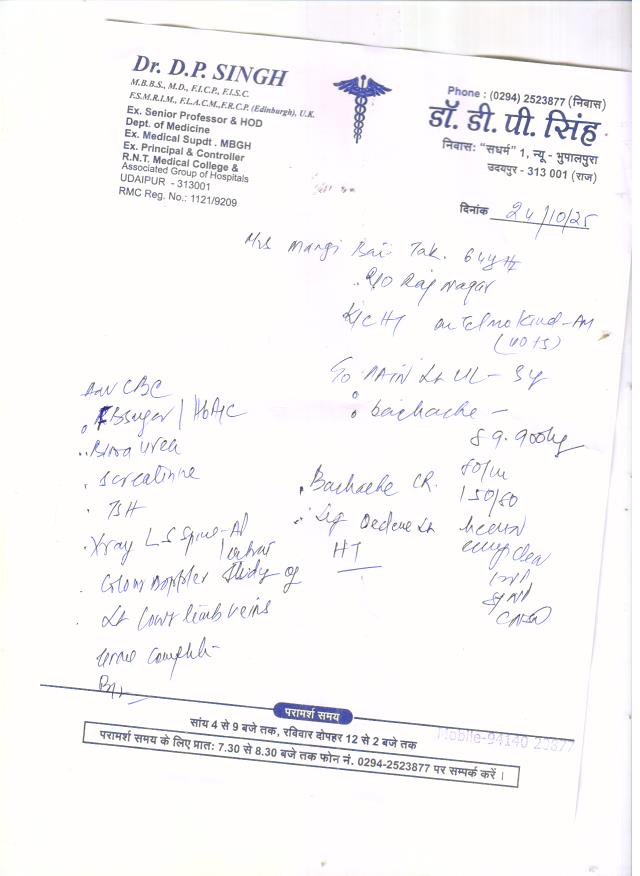 Dr. D.P. SINGH
M.B.B.S., M.D., F.I.C.P., F.I.S.C.
F.S.M.R.I.M., F.L.A.C.M.,F.R.C.P. (Edinburgh), U.K.
Ex. Senior Professor & HOD
Dept. of Medicine
Ex. Medical Supdt . MBGH
Ex. Principal & Controller
R.N.T. Medical College &
Associated Group of Hospitals
UDAIPUR - 313001
RMC Reg. No.: 1121/9209
Phone : (0294) 2523877 (निवास)
डॉ. डी. पी. सिंह
निवास: "सधर्म" 1, न्यू - भुपालपुरा
उदयपुर - 313 001 (राज)
दिनांक 24/10/25
Mrs Mangi Bai Tak. 64y
R/O Raj nagar
K/C HT on Telmokind-AM
(40+5)
C/o PAIN Lt
backache -
89.900kg
80/m
Backache CR. 150/80
Leg Oedema Lt
HT
Adv CBC
Sugar / HbA1C
Blood urea
S creatinine
TSH
Xray LS Spine-AP
Colour Doppler Study of
Lt Lower limb veins
Urine complete
परामर्श समय
सांय 4 से 9 बजे तक, रविवार दोपहर 12 से 2 बजे तक
Mobile-94140 23877
परामर्श समय के लिए प्रातः 7.30 से 8.30 बजे तक फोन नं. 0294-2523877 पर सम्पर्क करें ।